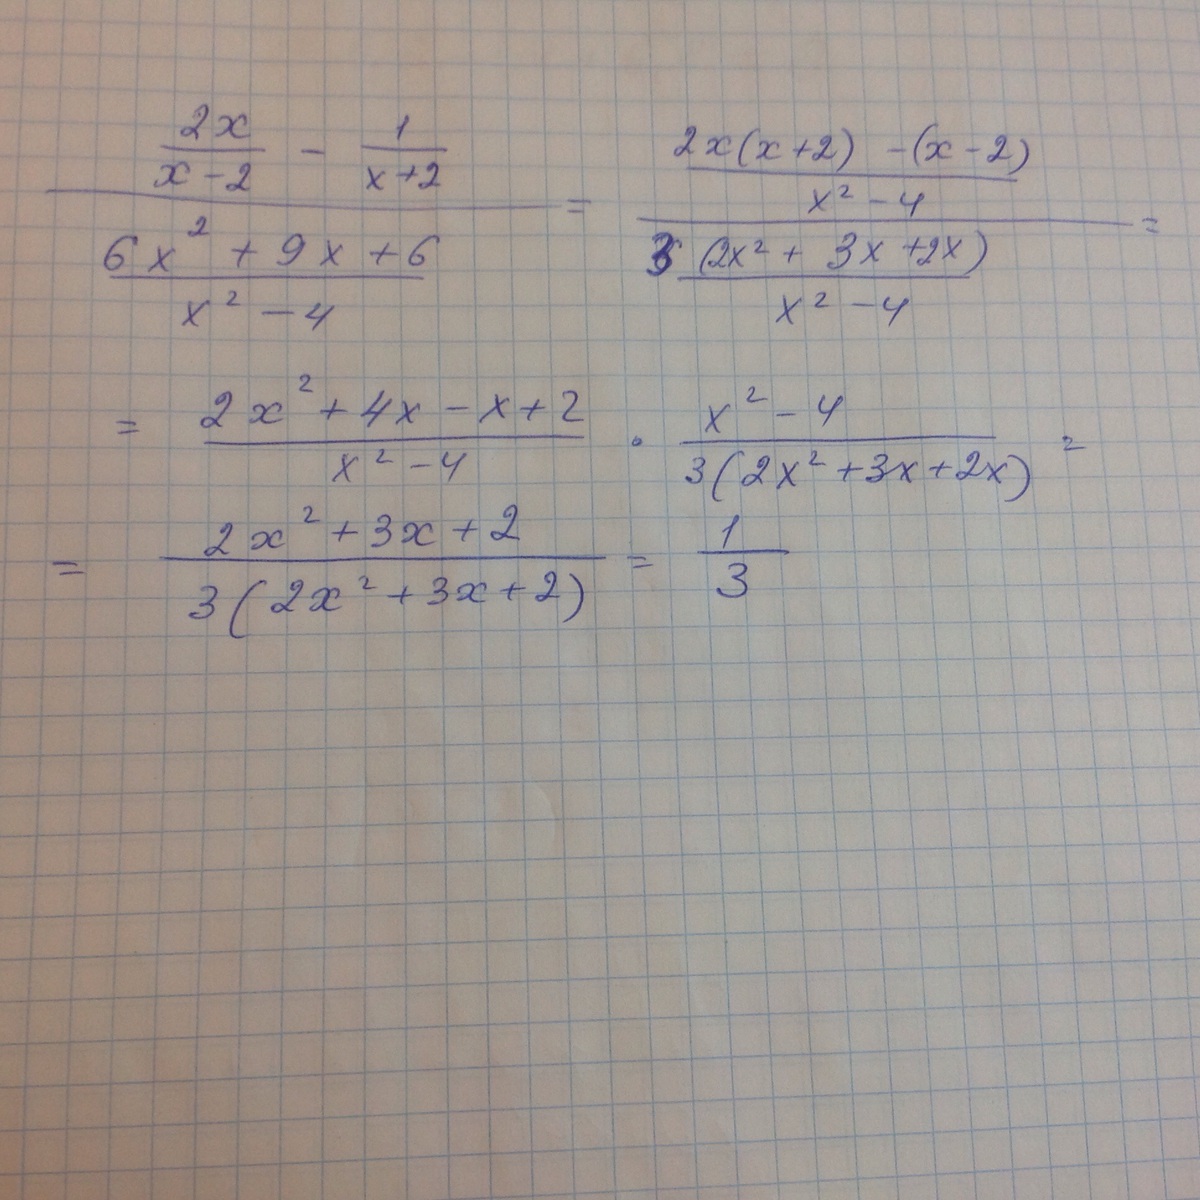 (2x/(x-2) - 1/(x+2)) / ((6x² + 9x + 6)/(x² - 4)) = ((2x(x+2) - (x-2))/(x² - 4)) / ((3(2x² + 3x + 2x))/(x² - 4)) =
= (2x² + 4x - x + 2)/(x² - 4) · (x² - 4)/(3(2x² + 3x + 2x)) =
= (2x² + 3x + 2)/(3(2x² + 3x + 2)) = 1/3